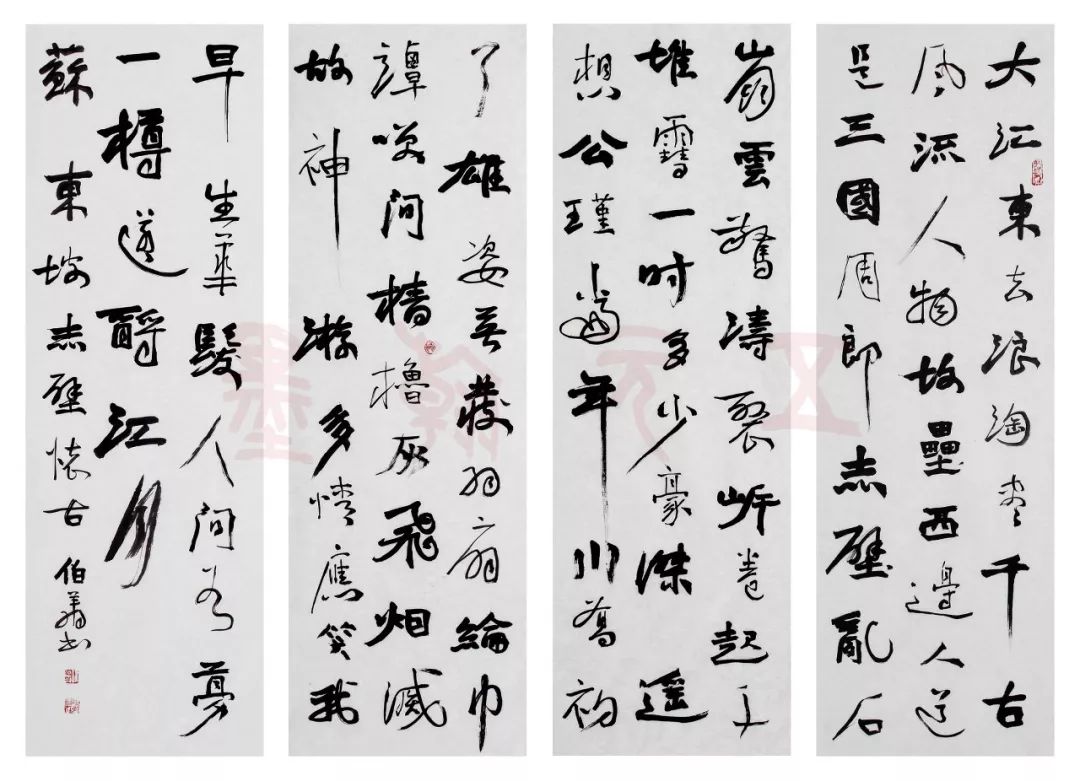 大江東去浪淘盡千古
風流人物故壘西邊人道
是三國周郎赤壁亂石
崩雲驚濤裂岸卷起千
堆雪一时多少豪傑遥
想公瑾當年小喬初
了雄姿英發羽扇綸巾
譚笑间檣櫓灰飛烟滅
故神游多情應笑我
早生華髮人间如夢
一樽還酹江月
蘇東坡赤壁懷古 伯 書
翰墨